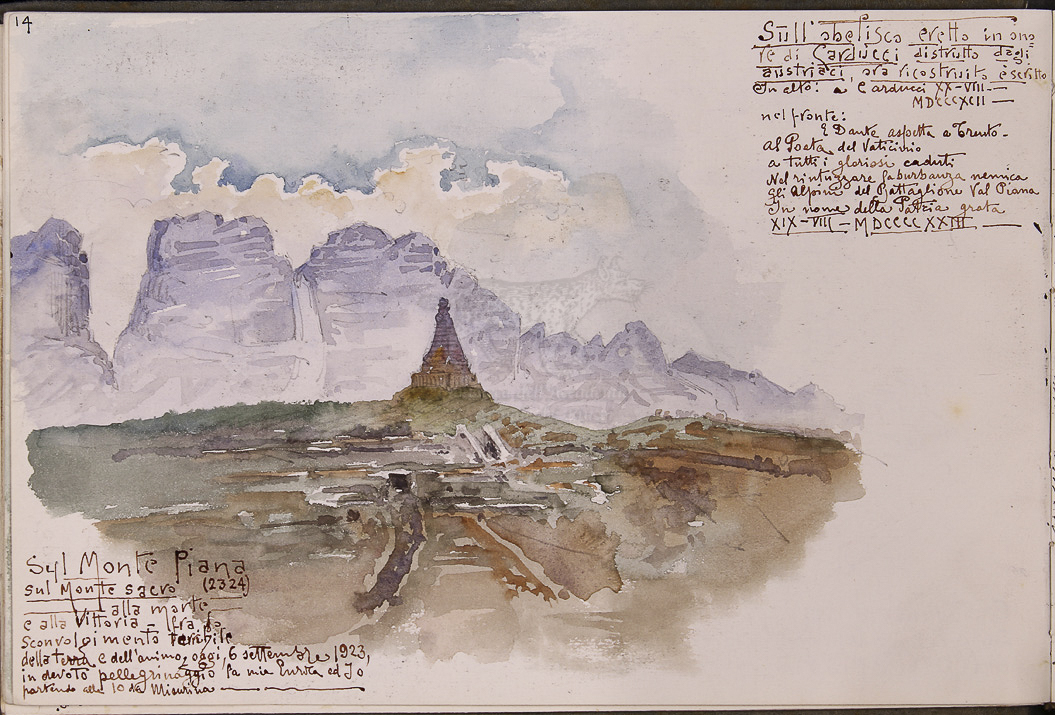 14
Sull'obelisco eretto in ono
re di Carducci distrutto dagli
austriaci, ora ricostruito è scritto
In alto: a Carducci XX-VIII-
MDCCCXCII -
nel fronte:
E Dante aspetta a Trento-
Al Poeta del Vaticinio
a tutti i gloriosi caduti
Nel rintuzzare la burbanza nemica
Gli Alpini del Battaglione Val Piana
In nome della Patria grata
XIX-VIII-MDCCCCXXIII-
Sul Monte Piana
sul Monte sacro (2324)
alla morte
e alla Vittoria - fra lo
sconvolgimento terribile
della terra e dell'animo, oggi, 6 settembre 1923,
in devoto pellegrinaggio la mia Enrica ed Io
partendo alle 10 da Misurina